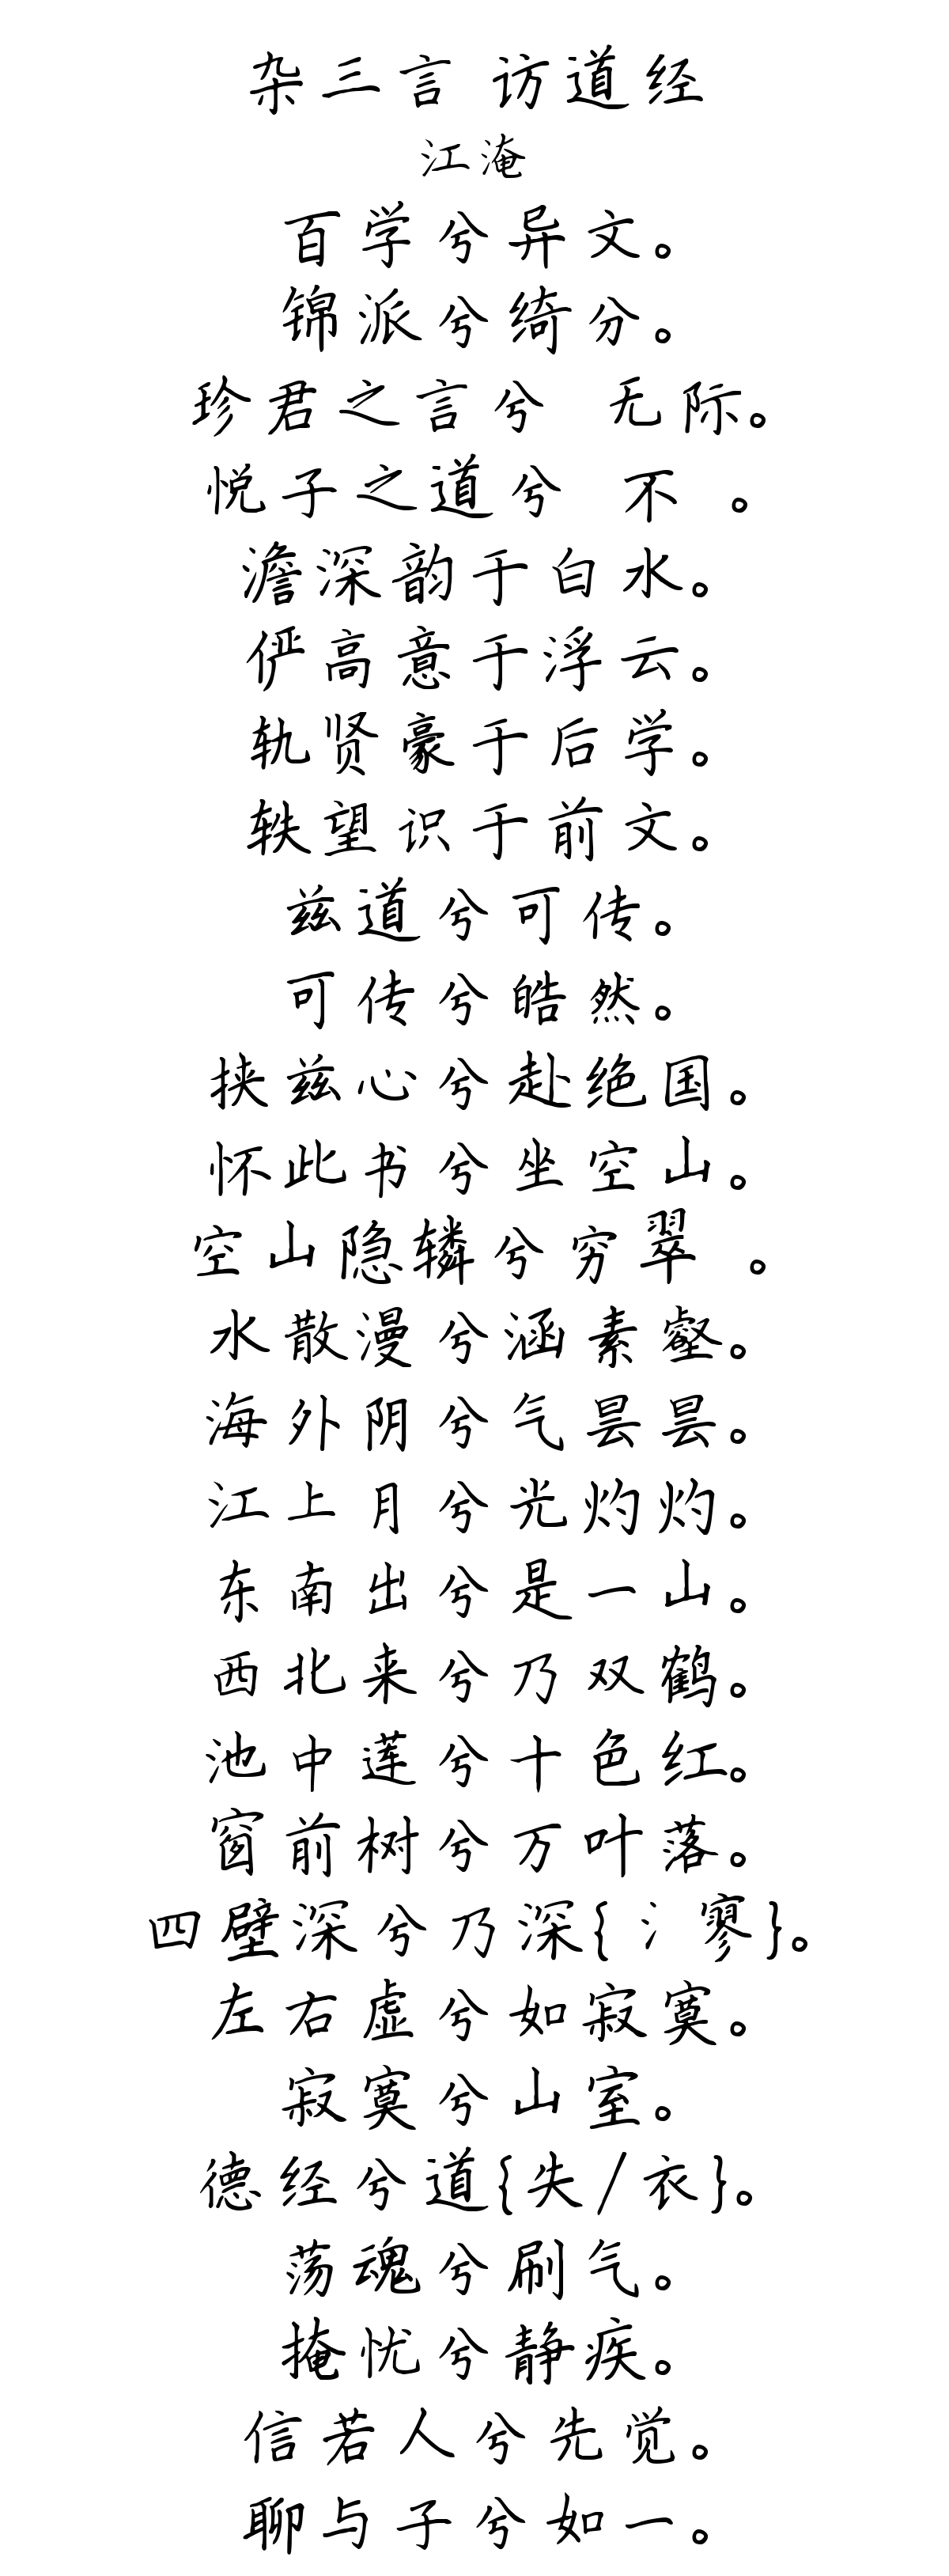 杂三言 访道经
江淹
百学兮异文。
锦派兮绮分。
珍君之言兮 无际。
悦子之道兮 不 。
澹深韵于白水。
俨高意于浮云。
轨贤豪于后学。
轶望识于前文。
兹道兮可传。
可传兮皓然。
挟兹心兮赴绝国。
怀此书兮坐空山。
空山隐辚兮穷翠 。
水散漫兮涵素壑。
海外阴兮气昙昙。
江上月兮光灼灼。
东南出兮是一山。
西北来兮乃双鹤。
池中莲兮十色红。
窗前树兮万叶落。
四壁深兮乃深{氵寥}。
左右虚兮如寂寞。
寂寞兮山室。
德经兮道{失/衣}。
荡魂兮刷气。
掩忧兮静疾。
信若人兮先觉。
聊与子兮如一。